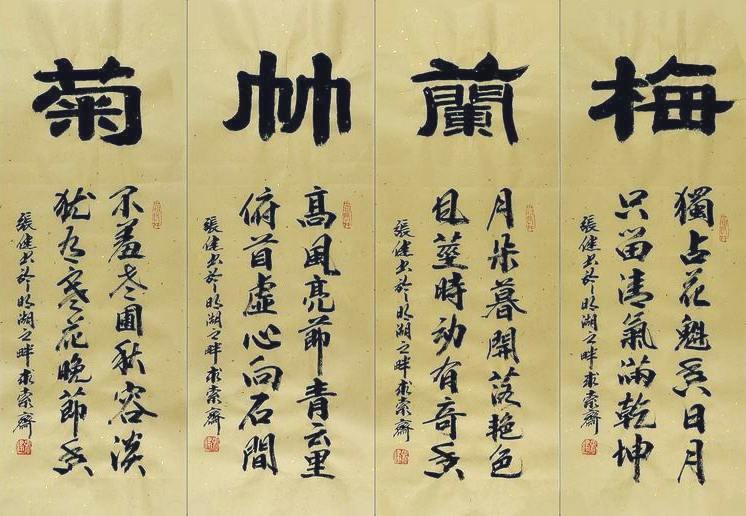 梅
獨占花魁香日月
只留清氣滿乾坤
張健书於明湖之畔求索齋
蘭
月朵暮開落艷色
風莖時动有奇香
張健书於明湖之畔求索齋
竹
高風亮節青云里
俯首虛心向石間
張健书於明湖之畔求索齋
菊
不羞老圃秋容淡
猶有寒花晚節香
張健书於明湖之畔求索齋